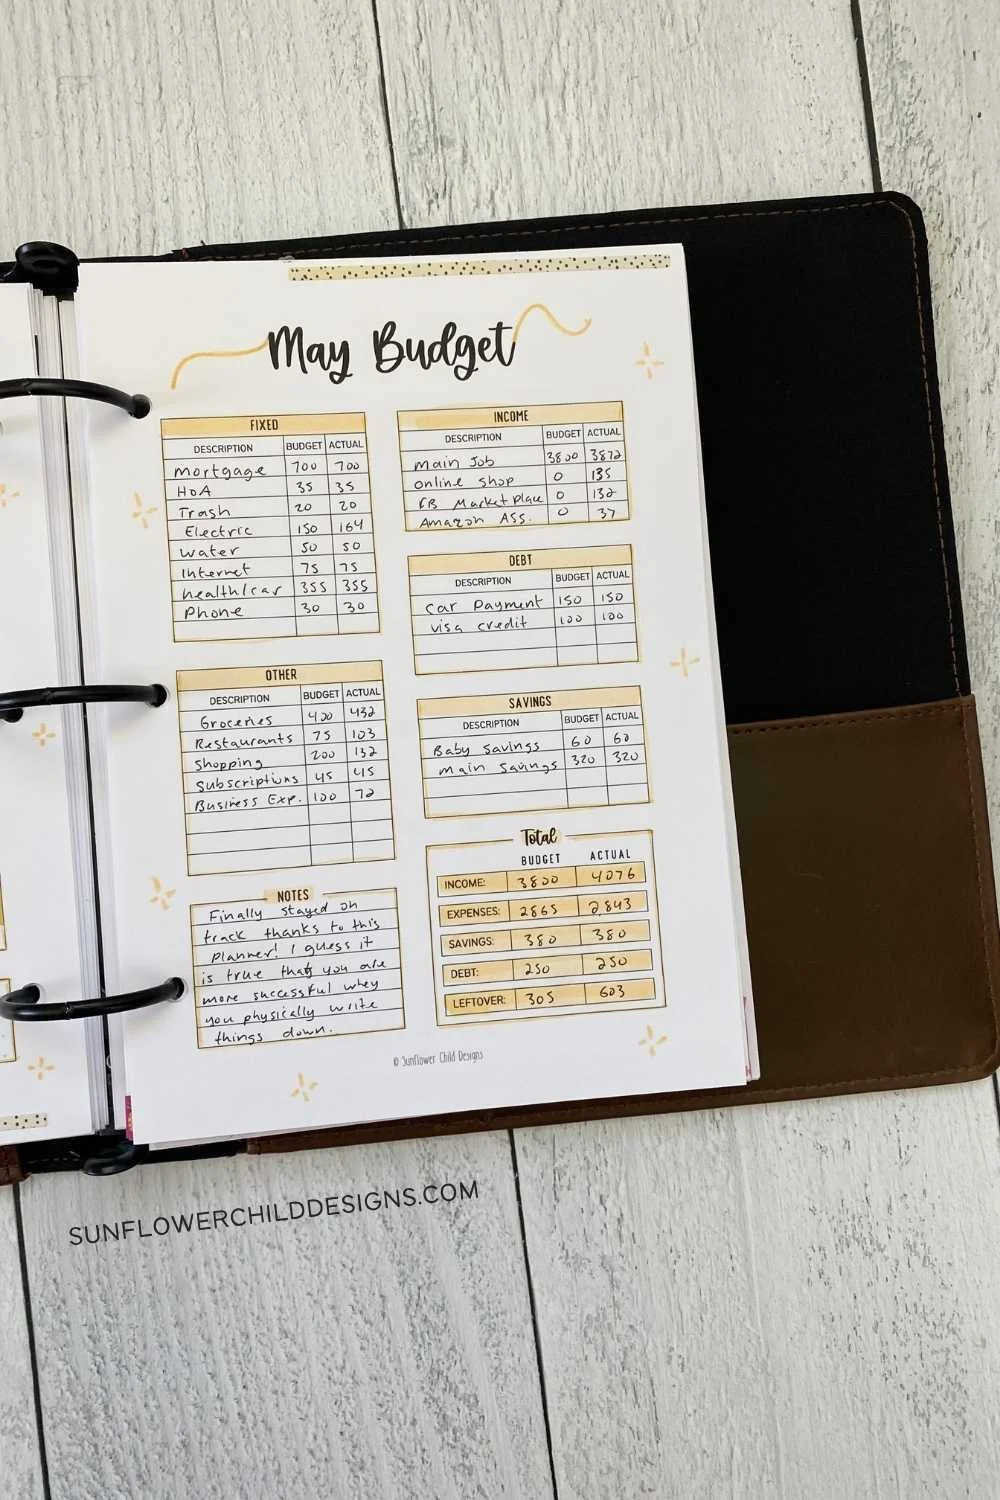 May Budget
FIXED
DESCRIPTION BUDGET ACTUAL
mortgage 700 700
HOA 35 35
Trash 20 20
Electric 150 164
Water 50 50
Internet 75 75
health/car 355 355
Phone 30 30
OTHER
DESCRIPTION BUDGET ACTUAL
Groceries 400 432
Restaurants 75 103
shopping 200 132
Subscriptions 45 45
Business Exp. 100 72
NOTES
Finally stayed on
track thanks to this
planner! I guess it
is true that you are
more successful whey
you physically write
things down.
INCOME
DESCRIPTION BUDGET ACTUAL
Main Job 3800 3872
online shop 0 135
FB Marketplace 0 132
Amazon Ass. 0 37
DEBT
DESCRIPTION BUDGET ACTUAL
Car Payment 150 150
visa credit 100 100
SAVINGS
DESCRIPTION BUDGET ACTUAL
Baby savings 60 60
main savings 320 320
Total
BUDGET ACTUAL
INCOME: 3800 4076
EXPENSES: 2865 2,843
SAVINGS: 380 380
DEBT: 250 250
LEFTOVER: 305 603
© Sunflower Child Designs
SUNFLOWERCHILDDESIGNS.COM